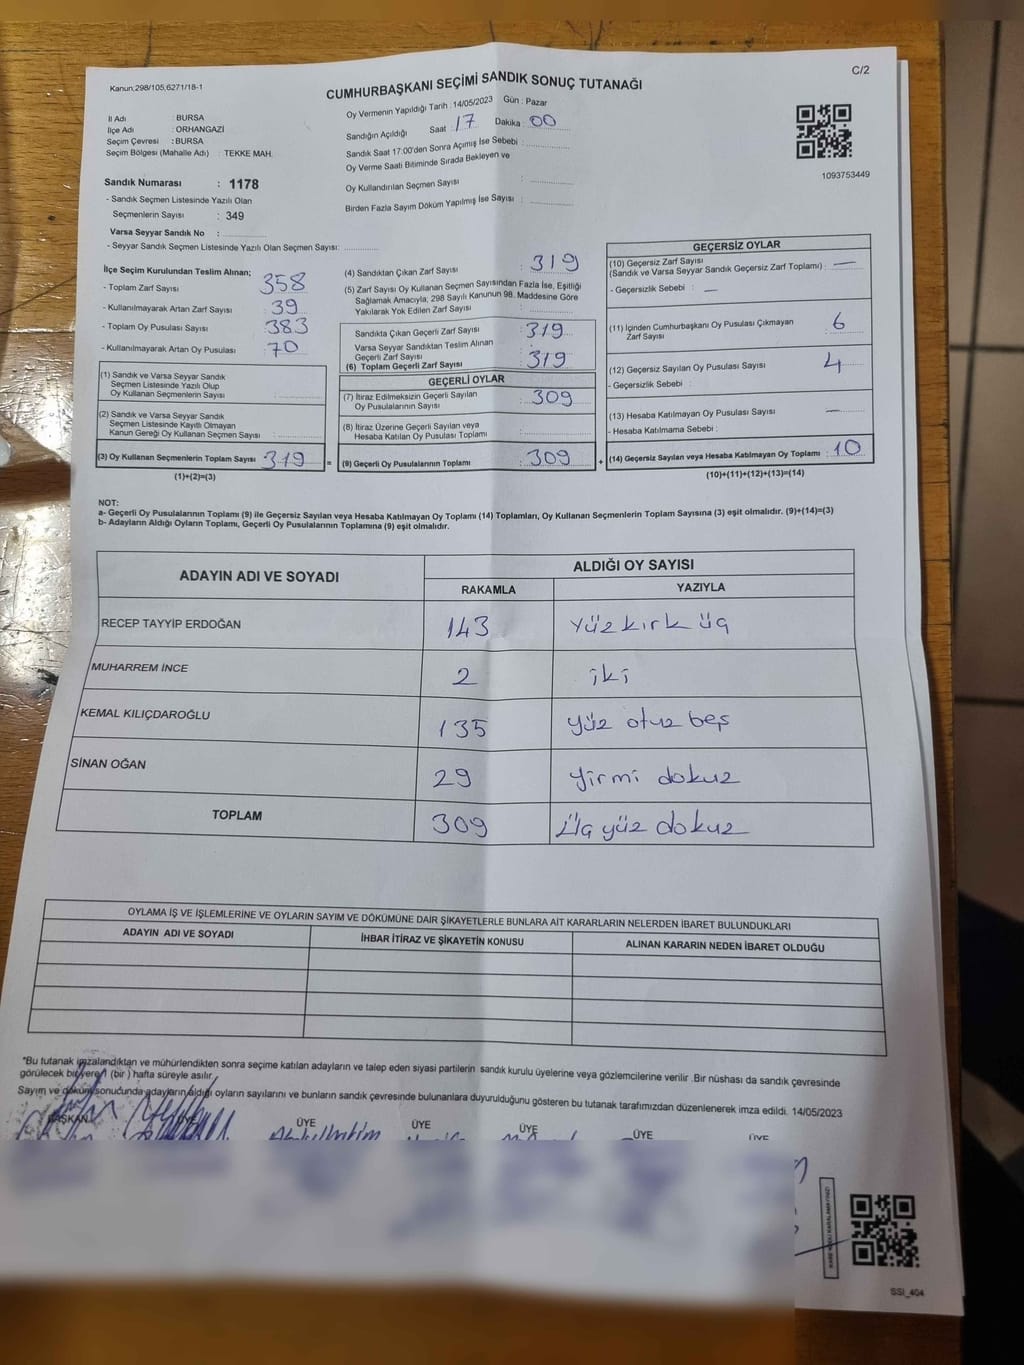 C/2
Kanun,298/105,6271/18-1
CUMHURBAŞKANI SEÇİMİ SANDIK SONUÇ TUTANAĞI
İl Adı : BURSA
İlçe Adı : ORHANGAZİ
Seçim Çevresi : BURSA
Seçim Bölgesi (Mahalle Adı) : TEKKE MAH.
Sandık Numarası : 1178
- Sandık Seçmen Listesinde Yazılı Olan
Seçmenlerin Sayısı : 349
Varsa Seyyar Sandık No :
- Seyyar Sandık Seçmen Listesinde Yazılı Olan Seçmen Sayısı:
Oy Vermenin Yapıldığı Tarih : 14/05/2023 Gün : Pazar
Sandığın Açıldığı Saat : 17 Dakika : 00
Sandık Saat 17:00'den Sonra Açımış İse Sebebi :
Oy Verme Saati Bitiminde Sırada Bekleyen ve
Oy Kullandırılan Seçmen Sayısı :
Birden Fazla Sayım Döküm Yapılmış İse Sayısı :
1093753449
İlçe Seçim Kurulundan Teslim Alınan;
- Toplam Zarf Sayısı : 358
- Kullanılmayarak Artan Zarf Sayısı : 39
- Toplam Oy Pusulası Sayısı : 383
- Kullanılmayarak Artan Oy Pusulası : 70
(1) Sandık ve Varsa Seyyar Sandık
Seçmen Listesinde Yazılı Olup
Oy Kullanan Seçmenlerin Sayısı :
(2) Sandık ve Varsa Seyyar Sandık
Seçmen Listesinde Kayıtlı Olmayan
Kanun Gereği Oy Kullanan Seçmen Sayısı :
(3) Oy Kullanan Seçmenlerin Toplam Sayısı : 319 =
(1)+(2)=(3)
(4) Sandıktan Çıkan Zarf Sayısı : 319
(5) Zarf Sayısı Oy Kullanan Seçmen Sayısından Fazla İse, Eşitliği
Sağlamak Amacıyla; 298 Sayılı Kanunun 98. Maddesine Göre
Yakılarak Yok Edilen Zarf Sayısı :
Sandıkta Çıkan Geçerli Zarf Sayısı : 319
Varsa Seyyar Sandıktan Teslim Alınan
Geçerli Zarf Sayısı :
(6) Toplam Geçerli Zarf Sayısı : 319
GEÇERLİ OYLAR
(7) İtiraz Edilmeksizin Geçerli Sayılan
Oy Pusulalarının Sayısı : 309
(8) İtiraz Üzerine Geçerli Sayılan veya
Hesaba Katılan Oy Pusulası Toplamı :
(9) Geçerli Oy Pusulalarının Toplamı : 309 +
GEÇERSİZ OYLAR
(10) Geçersiz Zarf Sayısı
(Sandık ve Varsa Seyyar Sandık Geçersiz Zarf Toplamı) : —
- Geçersizlik Sebebi : —
(11) İçinden Cumhurbaşkanı Oy Pusulası Çıkmayan
Zarf Sayısı : 6
(12) Geçersiz Sayılan Oy Pusulası Sayısı : 4
- Geçersizlik Sebebi :
(13) Hesaba Katılmayan Oy Pusulası Sayısı : —
- Hesaba Katılmama Sebebi :
(14) Geçersiz Sayılan veya Hesaba Katılmayan Oy Toplamı : 10
(10)+(11)+(12)+(13)=(14)
NOT:
a- Geçerli Oy Pusulalarının Toplamı (9) ile Geçersiz Sayılan veya Hesaba Katılmayan Oy Toplamı (14) Toplamları, Oy Kullanan Seçmenlerin Toplam Sayısına (3) eşit olmalıdır. (9)+(14)=(3)
b- Adayların Aldığı Oyların Toplamı, Geçerli Oy Pusulalarının Toplamına (9) eşit olmalıdır.
ADAYIN ADI VE SOYADI ALDIĞI OY SAYISI
RAKAMLA YAZIYLA
RECEP TAYYİP ERDOĞAN 143 yüz kırk üç
MUHARREM İNCE 2 iki
KEMAL KILIÇDAROĞLU 135 yüz otuz beş
SİNAN OĞAN 29 yirmi dokuz
TOPLAM 309 Üç yüz dokuz
OYLAMA İŞ VE İŞLEMLERİNE VE OYLARIN SAYIM VE DÖKÜMÜNE DAİR ŞİKAYETLERLE BUNLARA AİT KARARLARIN NELERDEN İBARET BULUNDUKLARI
ADAYIN ADI VE SOYADI İHBAR İTİRAZ VE ŞİKAYETİN KONUSU ALINAN KARARIN NEDEN İBARET OLDUĞU
*Bu tutanak imzalandıktan ve mühürlendikten sonra seçime katılan adayların ve talep eden siyasi partilerin sandık kurulu üyelerine veya gözlemcilerine verilir .Bir nüshası da sandık çevresinde
görülecek bir yere 1 (bir ) hafta süreyle asılır.
Sayım ve döküm sonucunda adayların aldığı oyların sayılarını ve bunların sandık çevresinde bulunanlara duyurulduğunu gösteren bu tutanak tarafımızdan düzenlenerek imza edildi. 14/05/2023
BAŞKAN ÜYE ÜYE ÜYE ÜYE ÜYE
SSI_404